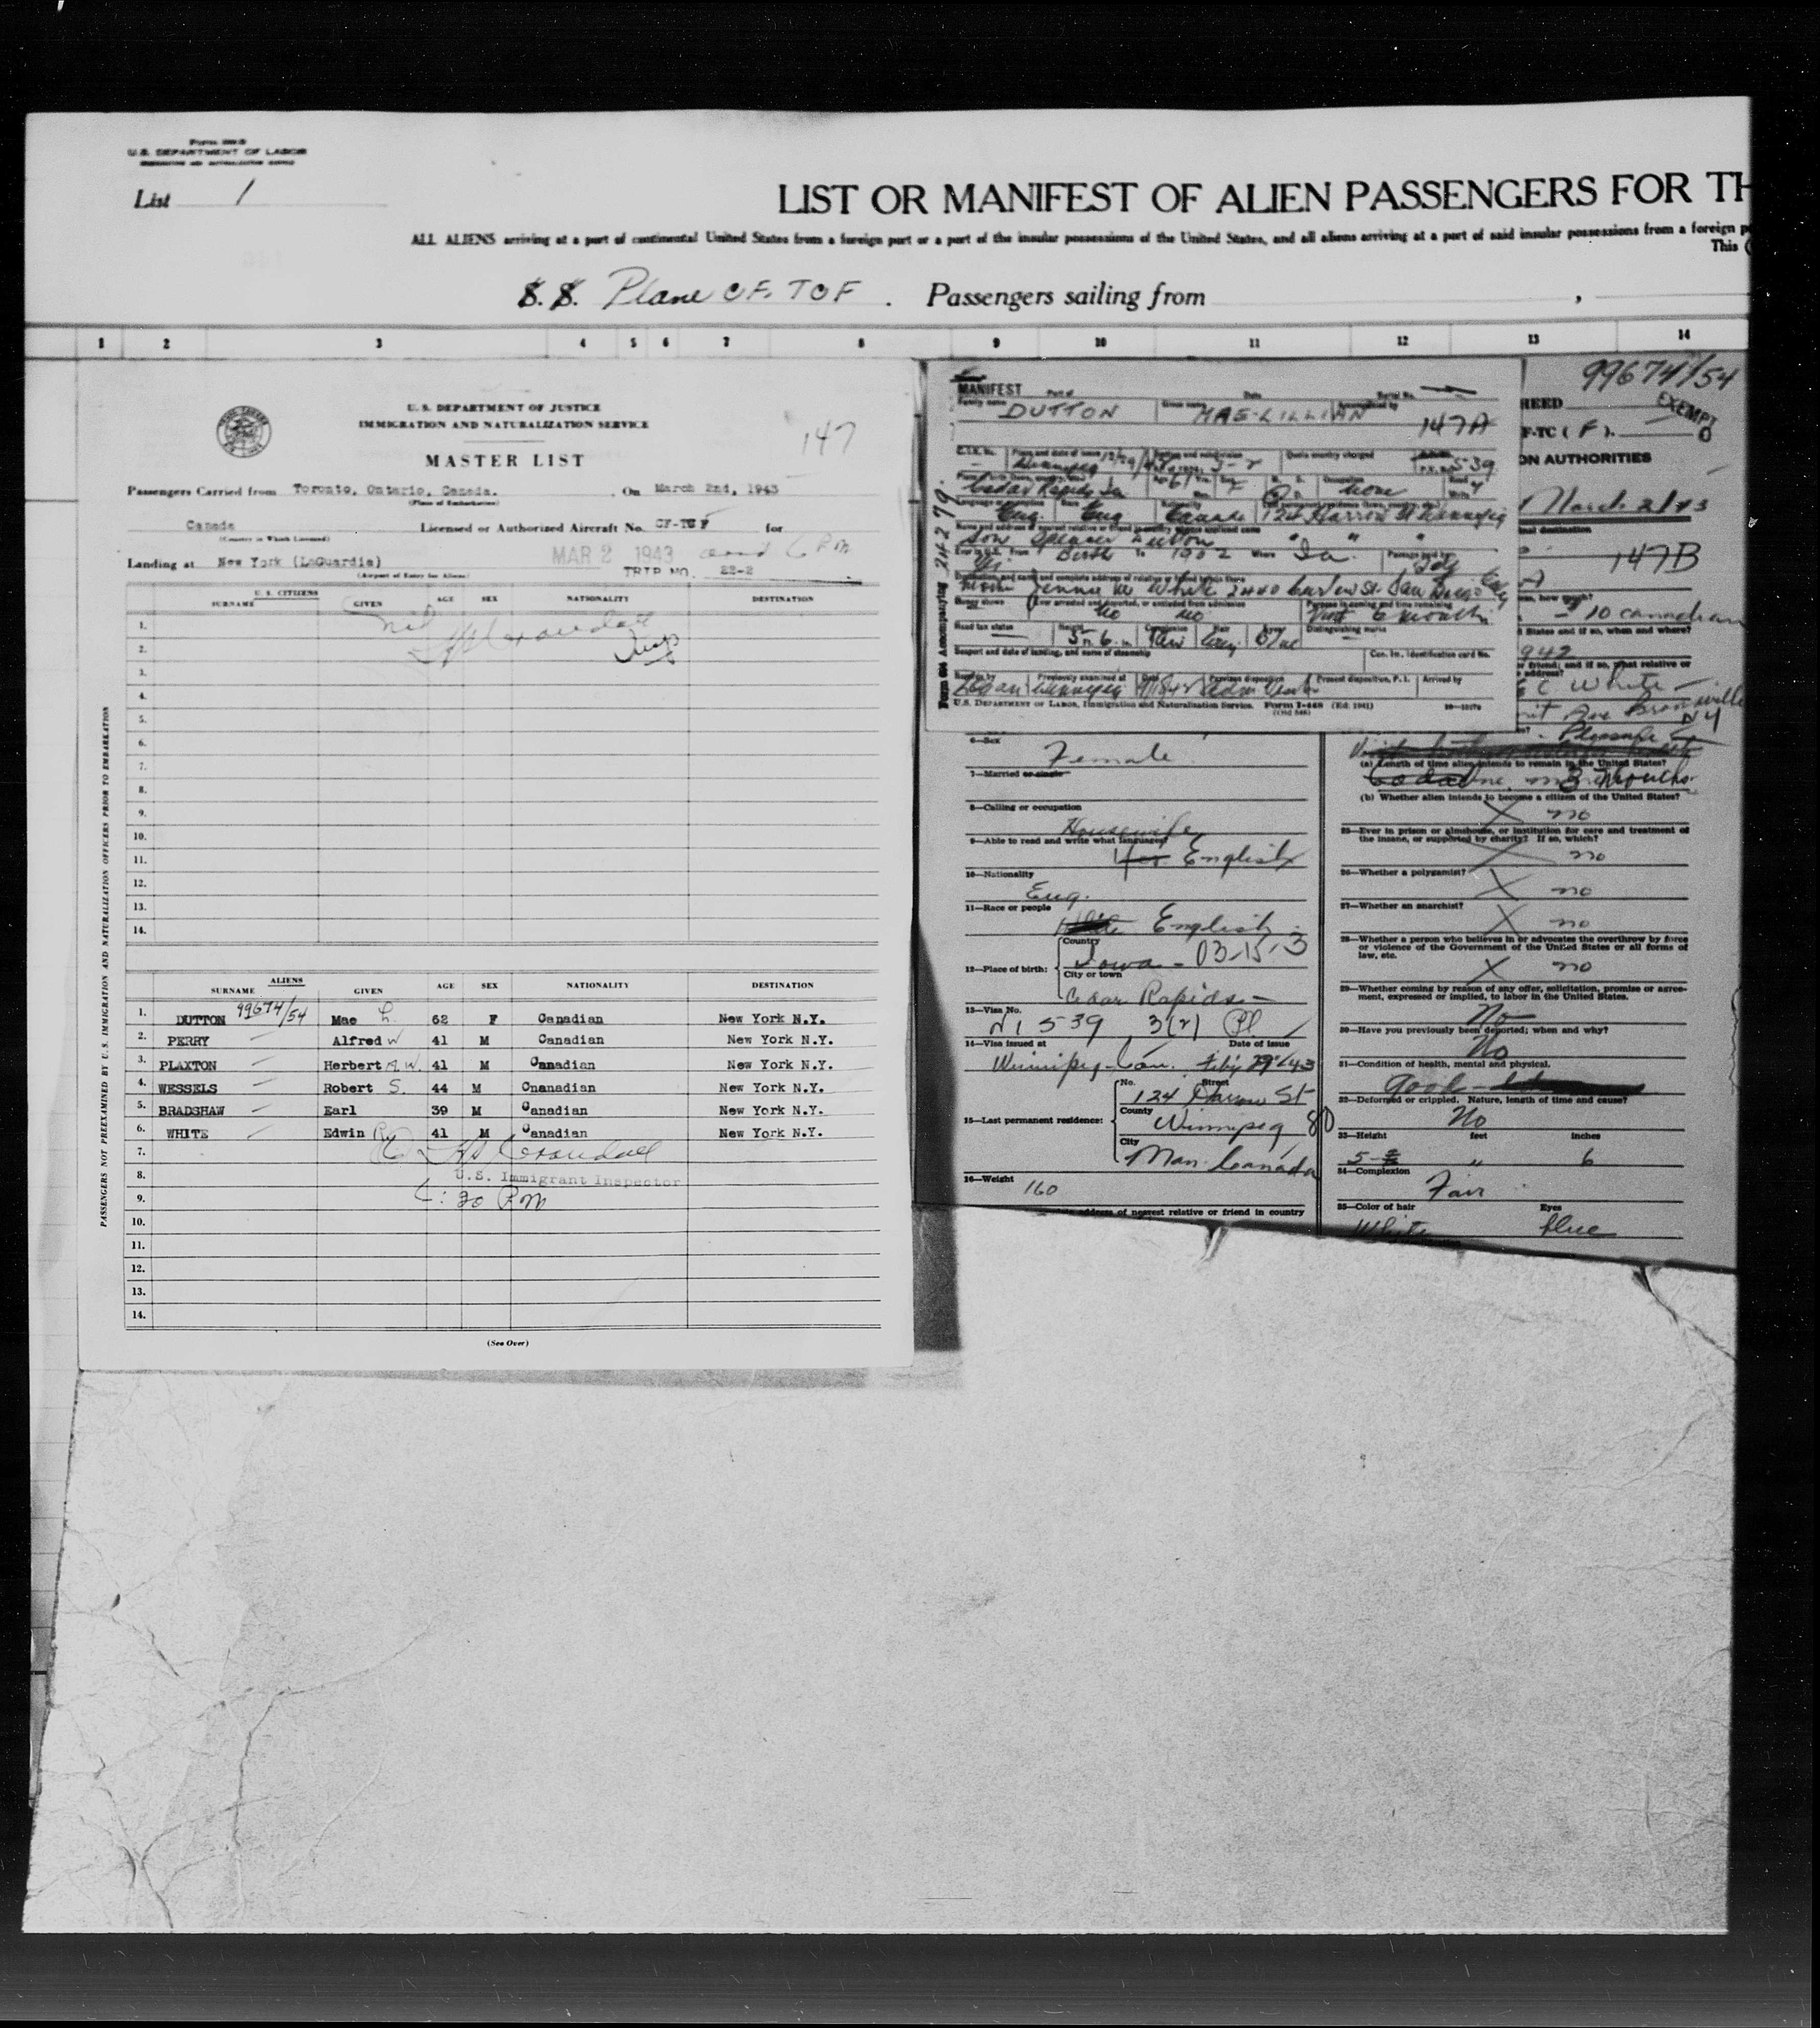 Form 500-B
U.S. DEPARTMENT OF LABOR
IMMIGRATION AND NATURALIZATION SERVICE
List 1
LIST OR MANIFEST OF ALIEN PASSENGERS FOR TH
ALL ALIENS arriving at a port of continental United States from a foreign port or a port of the insular possessions of the United States, and all aliens arriving at a port of said insular possessions from a foreign p
This (
S. S. Plane CF. TCF . Passengers sailing from ,
1 2 3 4 5 6 7 8 9 10 11 12 13 14
U. S. DEPARTMENT OF JUSTICE
IMMIGRATION AND NATURALIZATION SERVICE
147
MASTER LIST
Passengers Carried from Toronto, Ontario, Canada. , On March 2nd, 1943
(Place of Embarkation)
Canada Licensed or Authorized Aircraft No. CF-TCF for
(Country in Which Licensed)
MAR 2 1943 6 PM
Landing at New York (LaGuardia)
(Airport of Entry for Aliens)
TRIP NO. 22-2
U. S. CITIZENS
SURNAME GIVEN AGE SEX NATIONALITY DESTINATION
1. nil
2.
3.
4.
5.
6.
7.
8.
9.
10.
11.
12.
13.
14.
ALIENS
SURNAME GIVEN AGE SEX NATIONALITY DESTINATION
1. DUTTON 99674/54 Mae L. 62 F Canadian New York N.Y.
2. PERRY Alfred W 41 M Canadian New York N.Y.
3. PLAXTON Herbert A.W. 41 M Canadian New York N.Y.
4. WESSELS Robert S. 44 M Cnanadian New York N.Y.
5. BRADSHAW Earl 39 M Canadian New York N.Y.
6. WHITE Edwin 41 M Canadian New York N.Y.
7.
8. U.S. Immigrant Inspector
9. 6:20 PM
10.
11.
12.
13.
14.
(See Over)
PASSENGERS NOT PREEXAMINED BY U. S. IMMIGRATION AND NATURALIZATION OFFICERS PRIOR TO EMBARKATION
MANIFEST Port of Date Serial No.
Family name DUTTON Given name MAE-LILLIAN Accompanied by
147A
Winnipeg 12/29/42 3-2 539
Cedar Rapids Ia 61 F none
Eng. Eng Canada 124 Harrow St Winnipeg
Son Spencer Dutton " " "
Birth To 1902 Where Ia.
Jennie M White San Diego
no no Visit 6 months
5 ft. 6 in. Fair Grey Blue
Seaport and date of landing, and name of steamship Can. Im. Identification card No.
Logan Winnipeg
Previously examined at Previous disposition Present disposition, P. I. Arrived by
U. S. DEPARTMENT OF LABOR, Immigration and Naturalization Service. Form I-448 (Ed. 1941)
99674/54
REED EXEMPT
F-TC (F).
ON AUTHORITIES
March 2/43
nal destination
147B
how much?
- 10 canadian
States and if so, when and where?
942
r friend; and if so, what relative or
address?
C White
Ave Bronxville
NY
- Pleasure
6—Sex
Female
7—Married or single
8—Calling or occupation
Housewife
9—Able to read and write what languages?
Yes. English
10—Nationality
Eng.
11—Race or people
White English
12—Place of birth:
Country
Iowa - 03-15-3
City or town
Cedar Rapids -
13—Visa No.
N1 539 3(2) Pl
14—Visa issued at Date of issue
Winnipeg - Can. 29/43
15—Last permanent residence:
No. Street
124 Harrow St
County
Winnipeg 80
City
Man. Canada
16—Weight
160
address of nearest relative or friend in country
(a) Length of time alien intends to remain in the United States?
3 months
(b) Whether alien intends to become a citizen of the United States?
X no
25—Ever in prison or almshouse, or institution for care and treatment of
the insane, or supported by charity? If so, which?
X no
26—Whether a polygamist?
X no
27—Whether an anarchist?
X no
28—Whether a person who believes in or advocates the overthrow by force
or violence of the Government of the United States or all forms of
law, etc.
X no
29—Whether coming by reason of any offer, solicitation, promise or agree-
ment, expressed or implied, to labor in the United States.
No
30—Have you previously been deported; when and why?
No
31—Condition of health, mental and physical.
Good
32—Deformed or crippled. Nature, length of time and cause?
No
33—Height feet inches
5 " 6
34—Complexion
Fair
35—Color of hair Eyes
White blue